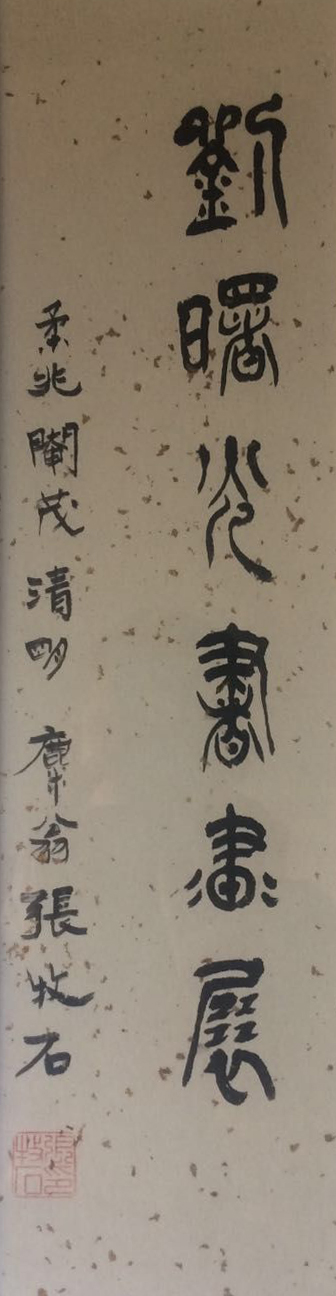 劉曙光書畫展
柔兆閹茂清明麋翁張牧石
張牧石印